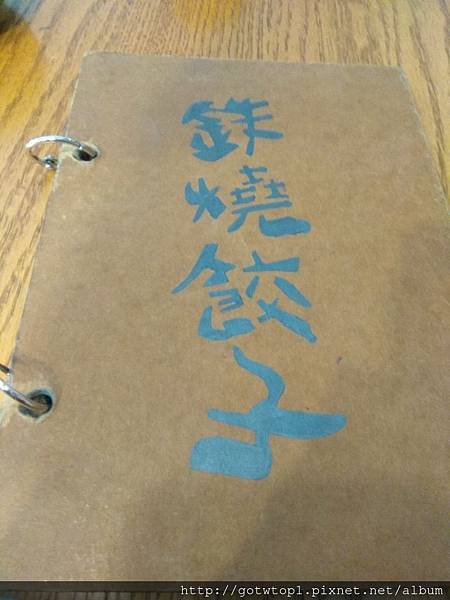 銖燒餃子
http://gotwtop1.pixnet.net/album